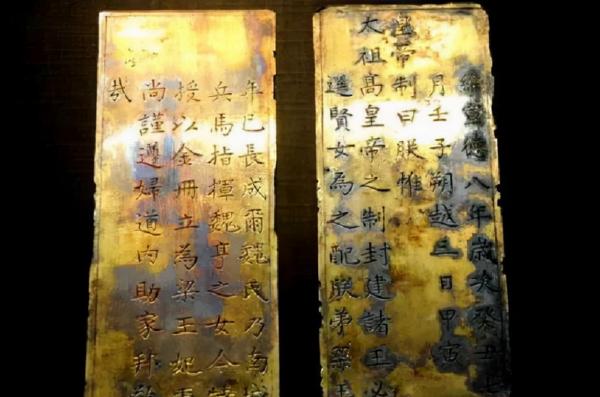 維宣德八年歲次癸丑七
月壬子朔越三日甲寅
皇帝制曰朕惟
太祖高皇帝之制封建諸王必
選賢女為之配朕弟梁王
年已長成爾魏氏乃南城
兵馬指揮魏亨之女今特
授以金冊立為梁王妃
尚謹遵婦道內助家邦敬
哉